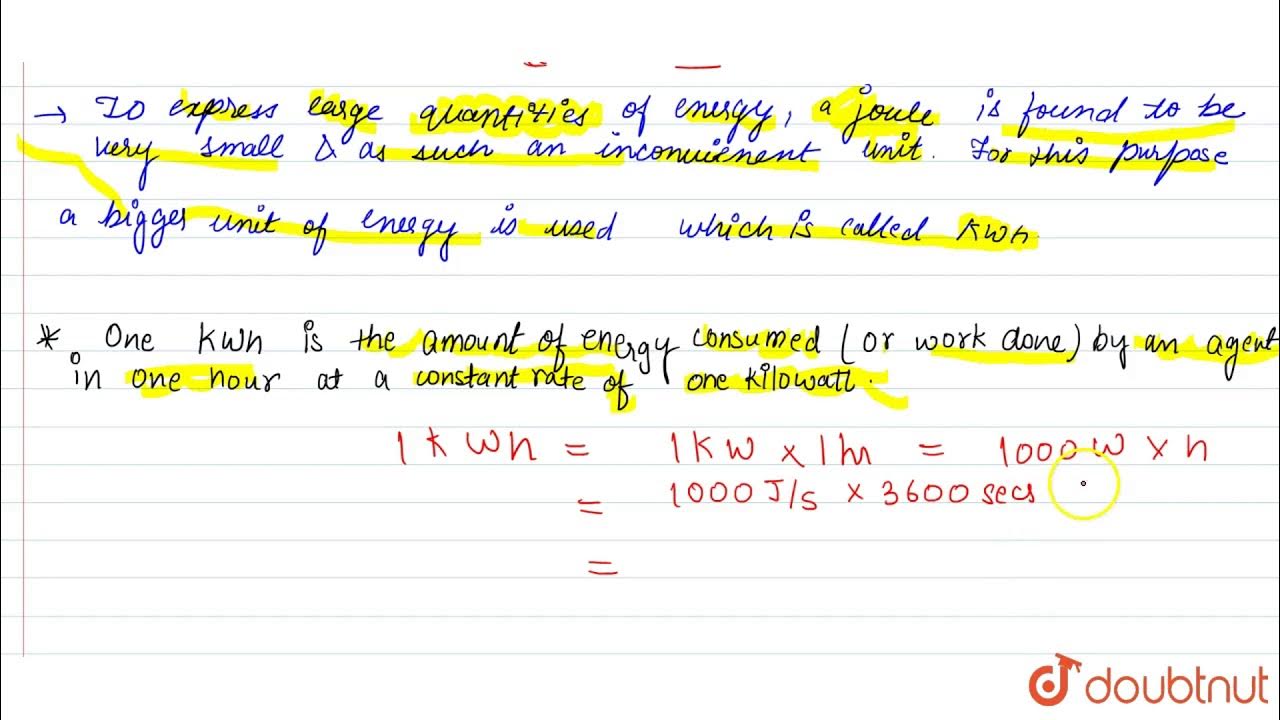 → To express large quantities of energy, a joule is found to be
very small & as such an inconvienent unit. For this purpose
a bigger unit of energy is used which is called KWh.
* One KWh is the amount of energy consumed (or work done) by an agent
in one hour at a constant rate of one kilowatt.
1 KWh = 1 KW × 1 hr = 1000 W × h
= 1000 J/s × 3600 secs
=
doubtnut